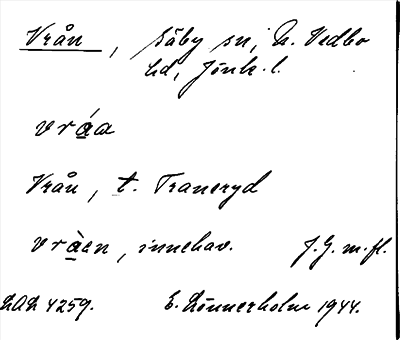 Vrån, Säby sn, N. Vedbo
hd, Jönk. l.
vrá̱a
Vrån, t. Traneryd
vrà̱en, innehav. J.G. m.fl.
ULD 4259. E. Lönnerholm 1944.